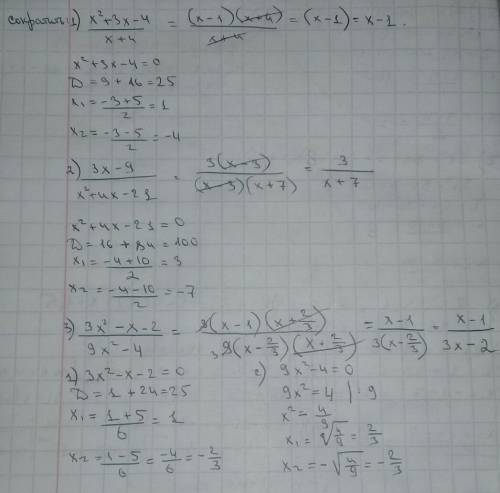 сократить 1) (x²+3x-4)/(x+4) = ((x-1)(x+4))/(x+4) = (x-1) = x-1.
x²+3x-4=0
D=9+16=25
x₁=(-3+5)/2=1
x₂=(-3-5)/2=-4
2) (3x-9)/(x²+4x-21) = (3(x-3))/((x-3)(x+7)) = 3/(x+7)
x²+4x-21=0
D=16+84=100
x₁=(-4+10)/2=3
x₂=(-4-10)/2=-7
3) (3x²-x-2)/(9x²-4) = (3(x-1)(x+2/3))/(3 9(x-2/3)(x+2/3)) = (x-1)/(3(x-2/3)) = (x-1)/(3x-2)
1) 3x²-x-2=0
D=1+24=25
x₁=(1+5)/6=1
x₂=(1-5)/6=-4/6=-2/3
2) 9x²-4=0
9x²=4 | :9
x²=4/9
x₁=√(4/9)=2/3
x₂=-√(4/9)=-2/3